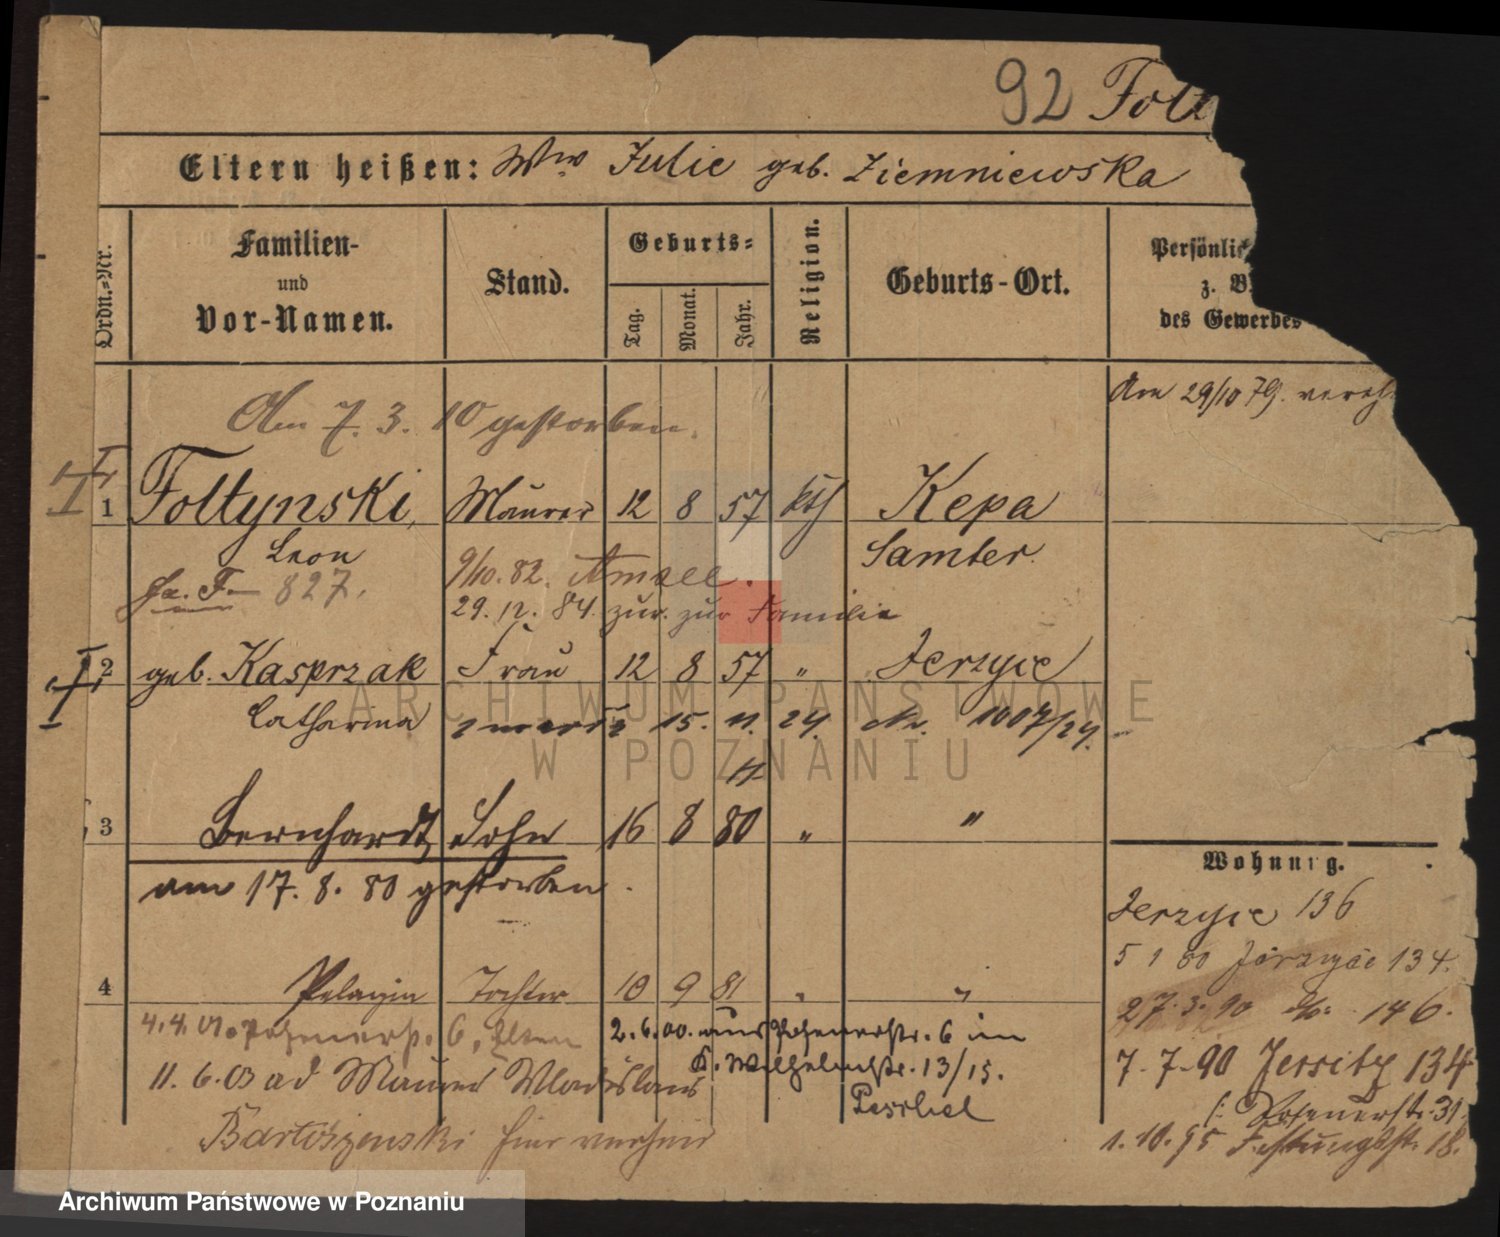 92 Folt
Eltern heißen: Wwe Julie geb. Ziemniewska
Ordn.=Nr.
Familien-
und
Vor-Namen.
Stand.
Geburts=
Tag.
Monat.
Jahr.
Religion.
Geburts-Ort.
Persönlic
z. B
des Gewerbes
Am 29/10 79. vereh.
Am 7. 3. 10 gestorben.
1 Foltynski, Maurer 12 8 57 kth Kepa
Leon Samter.
Fa. F. 827.
9/10. 82. 
29. 12. 84. zur. zur Familie
2 geb. Kasprzak Frau 12 8 57 " Jerzyce
Catharina zmarła 15. 11. 24. Nr. 1007/24.
3 Bernhardt Sohn 16 8 80 " "
am 17. 8. 80 gestorben.
4 Pelagia Tochter 10 9 81 " "
4.4.01. Posenerstr. 6, Eltern
2.6.00. aus Posenerstr. 6 in
K. Wilhelmstr. 13/15.
Peschel
11. 6. 03 ad Maurer Wladislaus
Bartoszewski hier verehel
Wohnung.
Jerzyce 136
5 1 80 Jerzyce 134.
27. 3. 90 do. 146.
7. 7. 90 Jersitz 134
Posenerstr. 31.
1. 10. 95 Festungsstr. 18.
ARCHIWUM PAŃSTWOWE
W POZNANIU
Archiwum Państwowe w Poznaniu